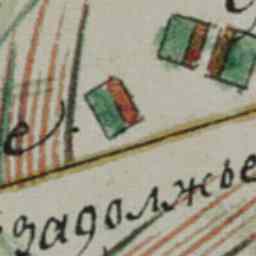 е.
задолжье